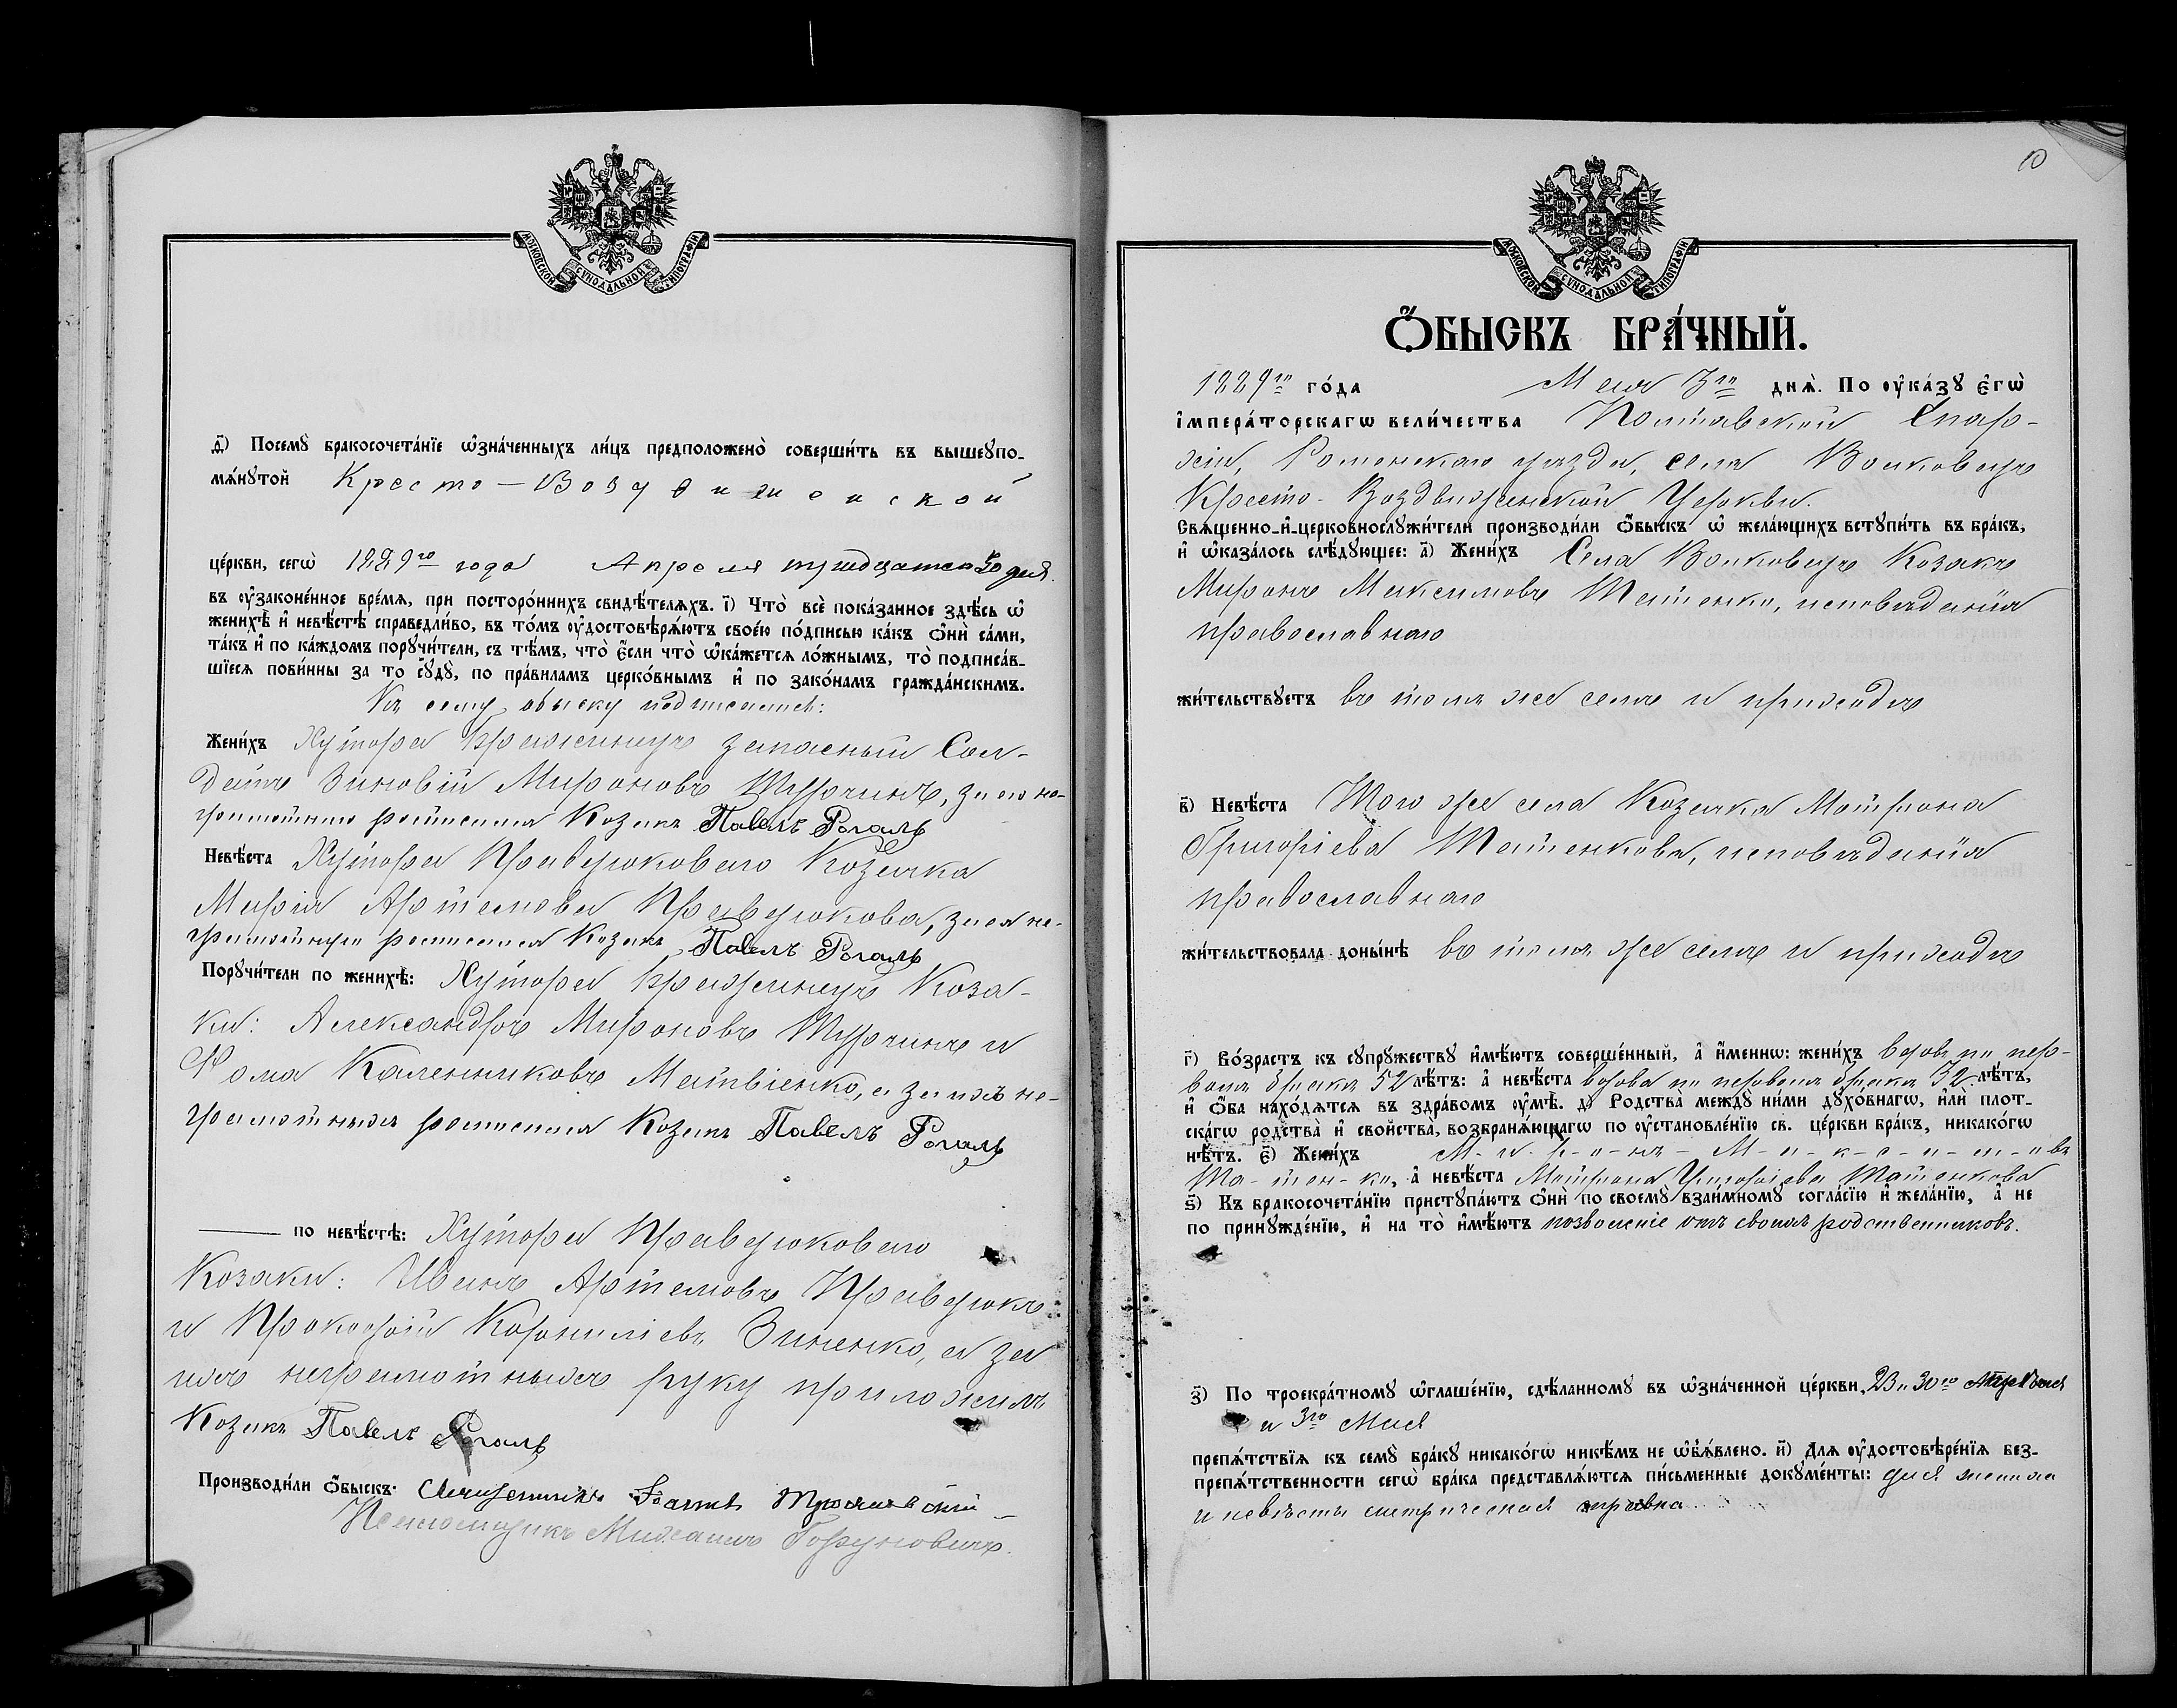 МОСКОВСКОЙ СѴНОДАЛЬНОЙ ТИПОГРАФІИ
д҃і) Посемꙋ бракосочета́нїе ѡ҆зна́ченныхъ ли́цъ предположено̀ соверши́ть въ вышеꙋпо-
мѧ́нꙋтой Кресто-Воздвиженской
це́ркви, сегѡ̀ 1889го года Апреля тридцатаго 30 дня.
въ ᲂу҆зако́ненное вре́мѧ, при посторо́ннихъ свидѣ́телѧхъ. і҃) Что̀ всѐ пока́занное здѣ́сь ѡ҆
женихѣ̀ и҆ невѣ́стѣ справедли́во, въ то́мъ ᲂу҆достовѣрѧ́ютъ свое́ю по́дписью ка́къ ѻ҆нѝ са́ми,
та́къ и҆ по ка́ждомъ порꙋчи́тели, съ тѣ́мъ, что̀ є҆́сли что̀ ѡ҆ка́жетсѧ ло́жнымъ, то̀ подписа́в-
шїесѧ пови́нны за то сꙋдꙋ̀, по пра́виламъ церко́внымъ и҆ по зако́намъ гражда́нскимъ.
Къ сему обыску подписались:
Жени́хъ Хутора запасный Сол-
датъ Зиновій Мироновъ Шурчинъ, за него не-
грамотнаго росписался Козакъ Павелъ Рогаль
Невѣ́ста Хутора Правдюковаго Козачка
Марія Артемова Правдюкова, за нея не-
грамотную росписался Козакъ Павелъ Рогаль
Порꙋчи́тели по женихѣ̀: Хутора Коза-
ки: Александръ Мироновъ Шурчинъ и
Фома Каленниковъ Матвіенко, а за ихъ не-
грамотныхъ росписался Козакъ Павелъ Рогаль
по невѣ́стѣ: Хутора Правдюковаго
Козаки: Иванъ Артемовъ Правдюкъ
и Прокофій Корниліевъ Зиненко, а за
ихъ неграмотныхъ руку приложилъ
Козакъ Павелъ Рогаль
Производи́ли ѻ҆́быскъ: Священникъ Іоаннъ
Псаломщикъ Михаилъ Горуновичъ.
10
МОСКОВСКОЙ СѴНОДАЛЬНОЙ ТИПОГРАФІИ
Ѻ҆́БЫСКЪ БРА́ЧНЫЙ.
1889го го́да Мая 3го днѧ̀. По ᲂу҆ка́зꙋ є҆гѡ̀
і҆мпера́торскагѡ вели́чества Полтавской Епар-
хіи, Роменскаго уезда, села Волковецъ
Кресто-Воздвиженской Церкви.
Свѧще́нно-и҆-церковнослꙋжи́тели производи́ли ѻ҆́быскъ ѡ҆ жела́ющихъ встꙋпи́ть въ бра́къ,
и҆ ѡ҆каза́лось слѣ́дꙋющее: а҃) Жени́хъ Села Волковецъ Козакъ
Миронъ Максимовъ Татенко, исповѣданія
православнаго
жи́тельствꙋетъ въ томъ же селѣ и приходѣ
в҃) Невѣ́ста Того же села Козачка Матрона
Григоріева Татенкова, исповѣданія
православнаго
жи́тельствовала доны́нѣ въ томъ же селѣ и приходѣ
г҃) Во́зрастъ къ сꙋпрꙋ́жествꙋ и҆мѣ́ютъ соверше́нный, а҆ и҆́меннѡ: жени́хъ вдовъ по пер-
вомъ бракѣ 52 лѣ́тъ: а҆ невѣ́ста вдова по первомъ бракѣ 32 лѣ́тъ,
и҆ ѻ҆́ба нахо́дѧтсѧ въ здра́вомъ ᲂу҆мѣ̀. д҃) Родства̀ междꙋ̀ ни́ми дꙋхо́внагѡ, и҆лѝ плот-
ска́гѡ родства̀ и҆ свойства̀, возбранѧ́ющагѡ по ᲂу҆становле́нїю св. це́ркви бра́къ, никако́гѡ
нѣ́тъ. є҃) Жени́хъ М-и-р-о-нъ - М-а-к-с-и-м-о-въ
Та-тен-ко, а҆ невѣ́ста Матрона Григоріева Татенкова
ѕ҃) Къ бракосочета́нїю пристꙋпа́ютъ ѻ҆нѝ по своемꙋ̀ взаи́мномꙋ согла́сїю и҆ жела́нїю, а҆ не
по принꙋжде́нїю, и҆ на то̀ и҆мѣ́ютъ позволеніе отъ своихъ родственниковъ.
з҃) По троекра́тномꙋ ѡ҆глаше́нїю, сдѣ́ланномꙋ въ ѡ҆зна́ченной це́ркви 23 и 30го
и 3го Мая
препѧ́тствїѧ къ семꙋ̀ бра́кꙋ никако́гѡ никѣ́мъ не ѡ҆б̾ѧ́влено. и҃) Длѧ̀ ᲂу҆достовѣре́нїѧ без-
препѧ́тственности сегѡ̀ бра́ка представлѧ́ютсѧ пи́сьменные докꙋме́нты: для жениха
и невѣсты метрическая справка